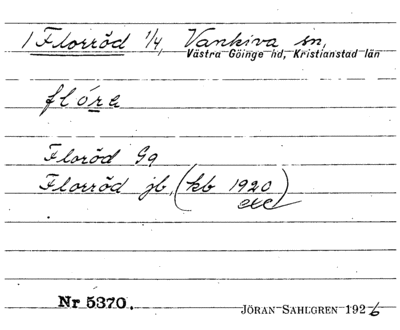 1 Florröd 1/4, Vankiva sn,
Västra Göinge hd, Kristianstad län
flóra
Floröd Gg
Florröd jb, (kb 1920)
etc
Nr 5370.
JÖRAN SAHLGREN 1926